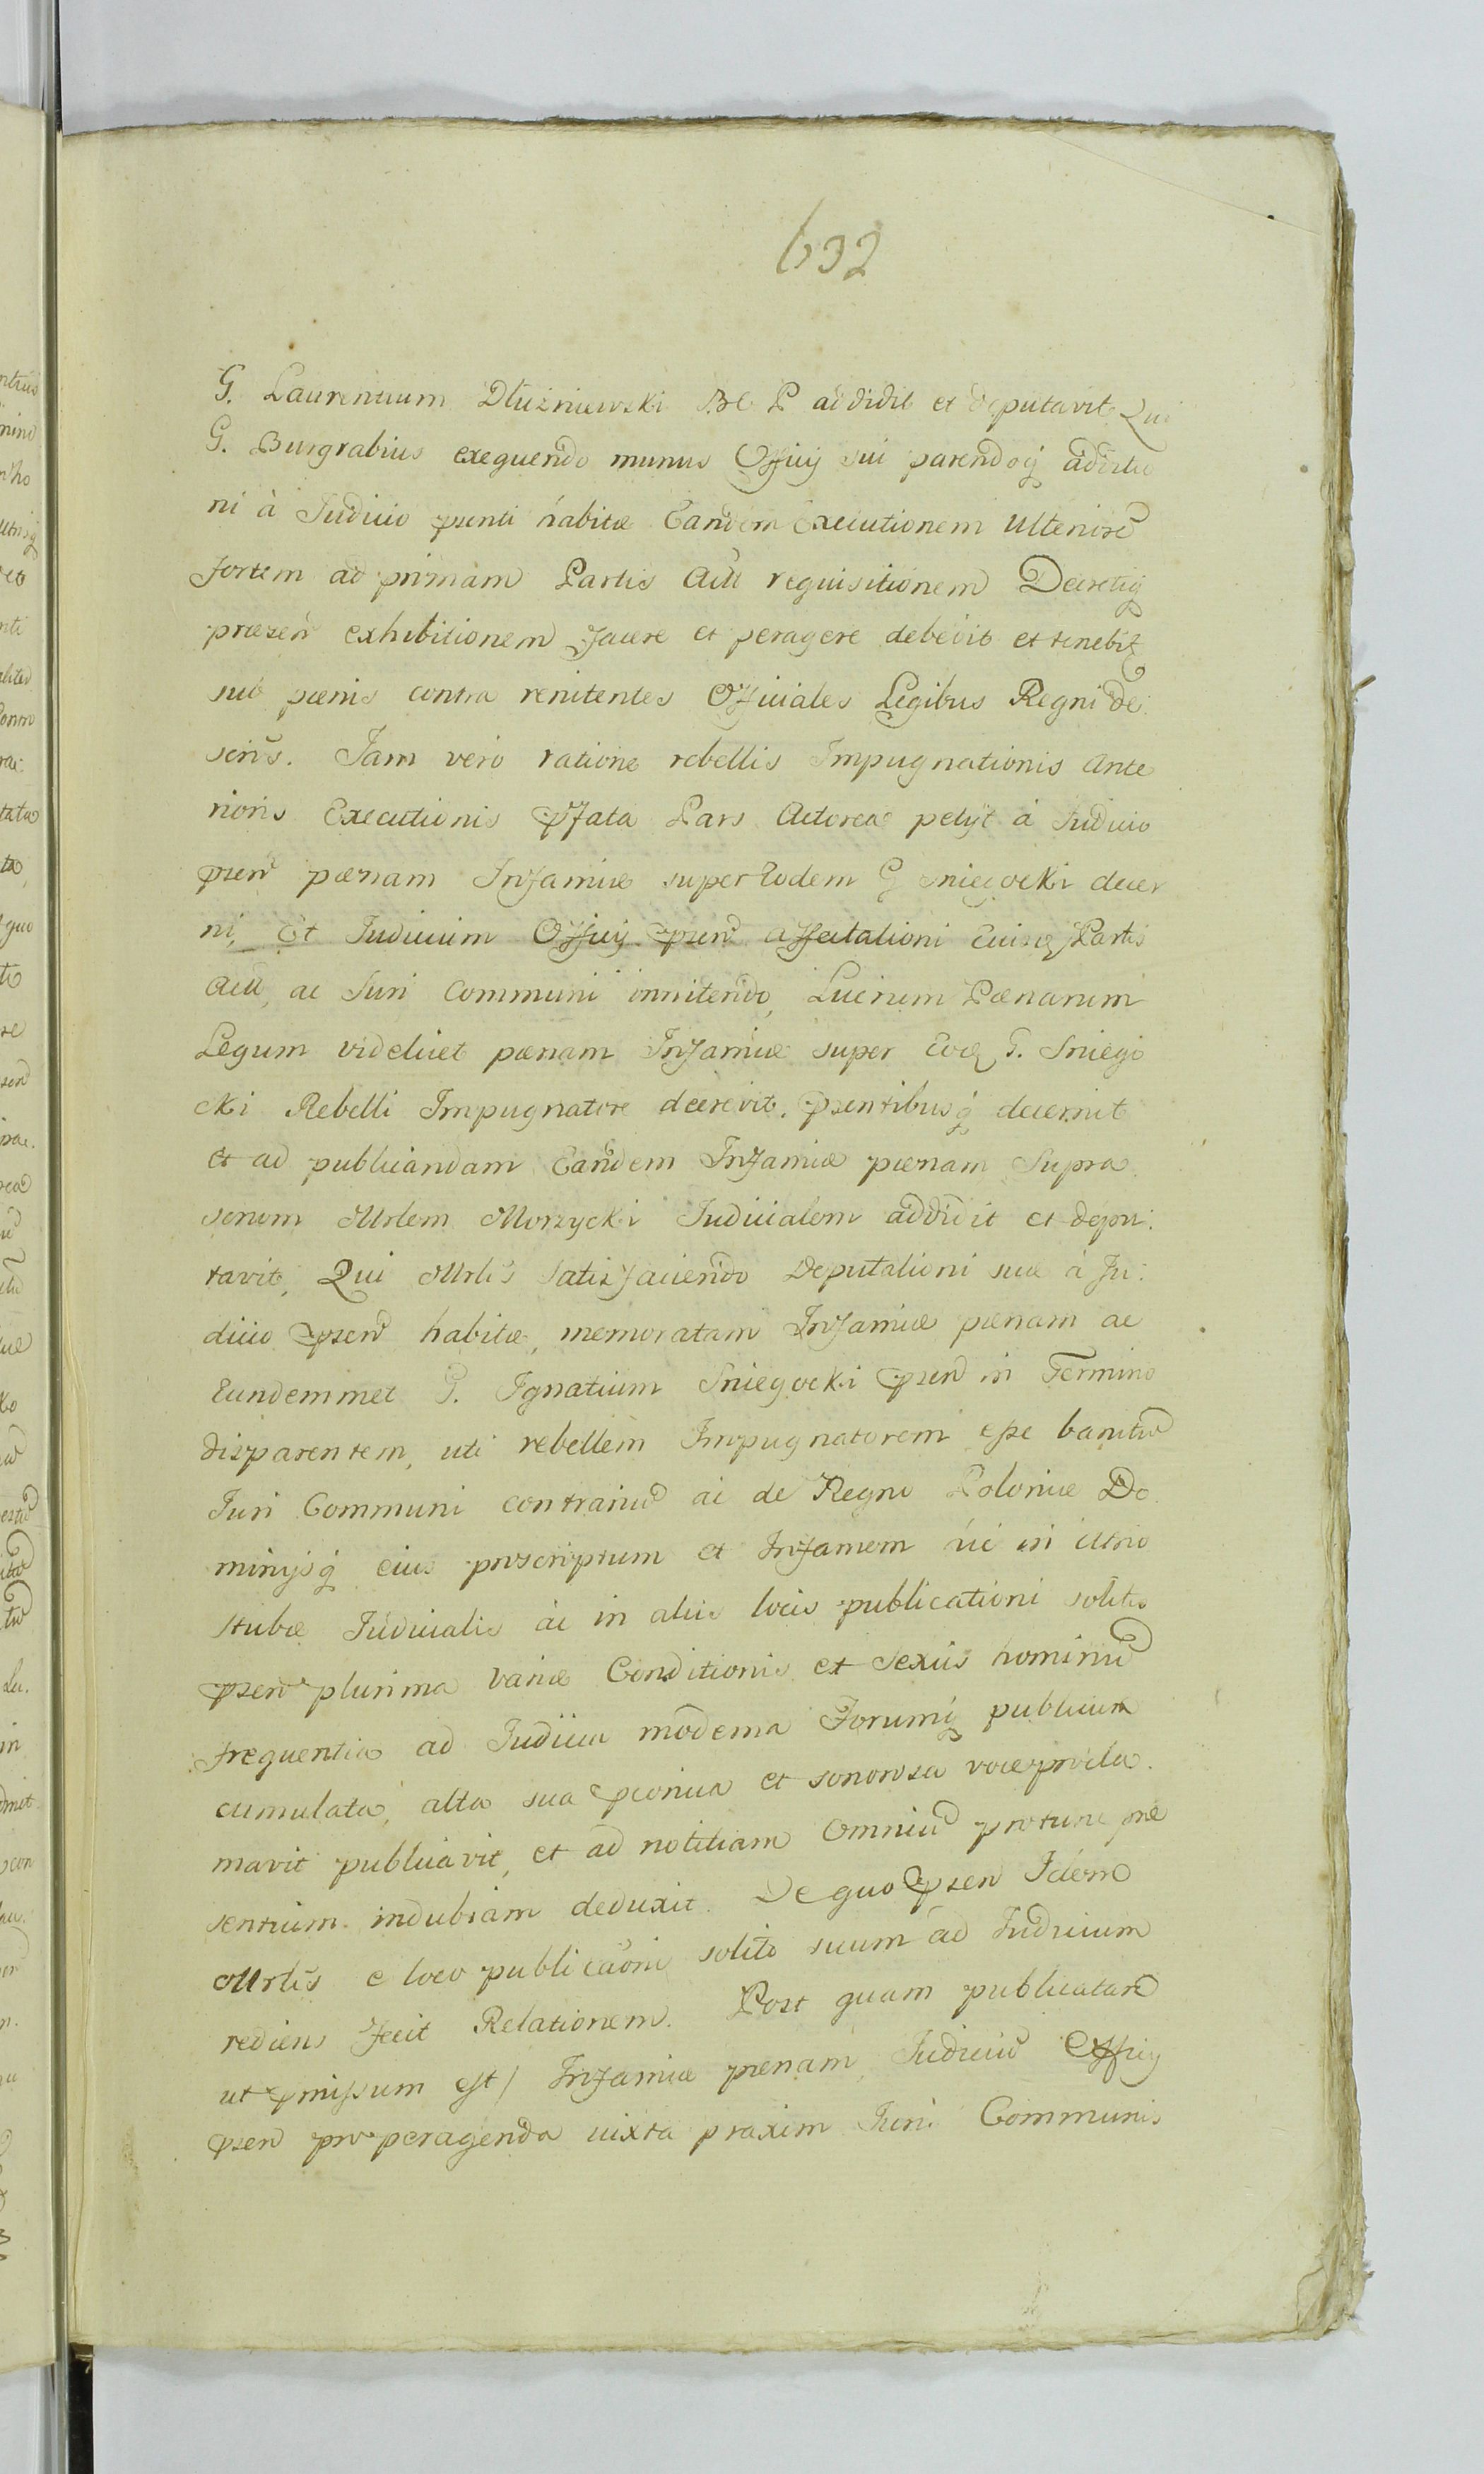 632
G. Laurentium Dłuźniewski BC P addidit et deputavit, Qui
G. Burgrabius exequendo munus Officij sui parendoq̃ additio
ni à Judicio pñsenti habitæ Eandem Executionem Ulteriorẽ
fortem ad primam Partis Actł requisitionem Decretiq̃
præseñ exhibitionem facere et peragere debebit et tenebit
sub pœnis contra renitentes Officiales Legibus Regni de:
scrīs. Jam verò ratione rebellis Impugnationis Ante
rioris Executionis pfata Pars Actorea petijt à Judicio
pñseñ pœnam Infamiæ super Eodem G Sniegocki decer
ni, Et Judicium Officij pñseñ Affectationi Eiusq̃ Partis
Actł, ac Juri Communi innitendo, Lucrum Pœnarum
Legum videlicet pœnam Infamiæ super Eodẽ G. Sniego
cki Rebelli Impugnatore decrevit, pñsentibusq̃ decernit
et ad publicandam Eandem Infamiæ pœnam Supra
scrīum Mrlem Morzycki Judicialem addidit et depu:
tavit, Qui Mrlis Satisfaciendo Deputationi suæ à Ju:
dicio pñseñ habitæ, memoratam Infamiæ pœnam ac
Eundemmet G. Ignatium Sniegocki pñseñ in Termino
disparentem, uti rebellem Impugnatorem esse banitũ
Juri Communi contrariũ ac de Regno Poloniæ Do
minijsq̃ eius proscriptum et Infamem hic in Atrio
Stubæ Judicialis ac in alijs locis publicationi solitis
pñseñ plurima variæ Conditionis et Sexus hominũ
frequentia ad Judicia moderna Forumq̃ publicum
cumulata, alta sua pconica et sonorosa voce procla
mavit publicavit, et ad notitiam Omniũ protunc præ
sentium indubiam deduxit. De quo pñseñ Idem
Mrlis e loco publicãoni solito suum ad Judicium
rediens fecit Relationem. Post quam publicatam
ut pmissum est / Infamiæ pœnam, Judiciũ Officij
pñseñ pro peragenda iuxta praxim Juris Communis